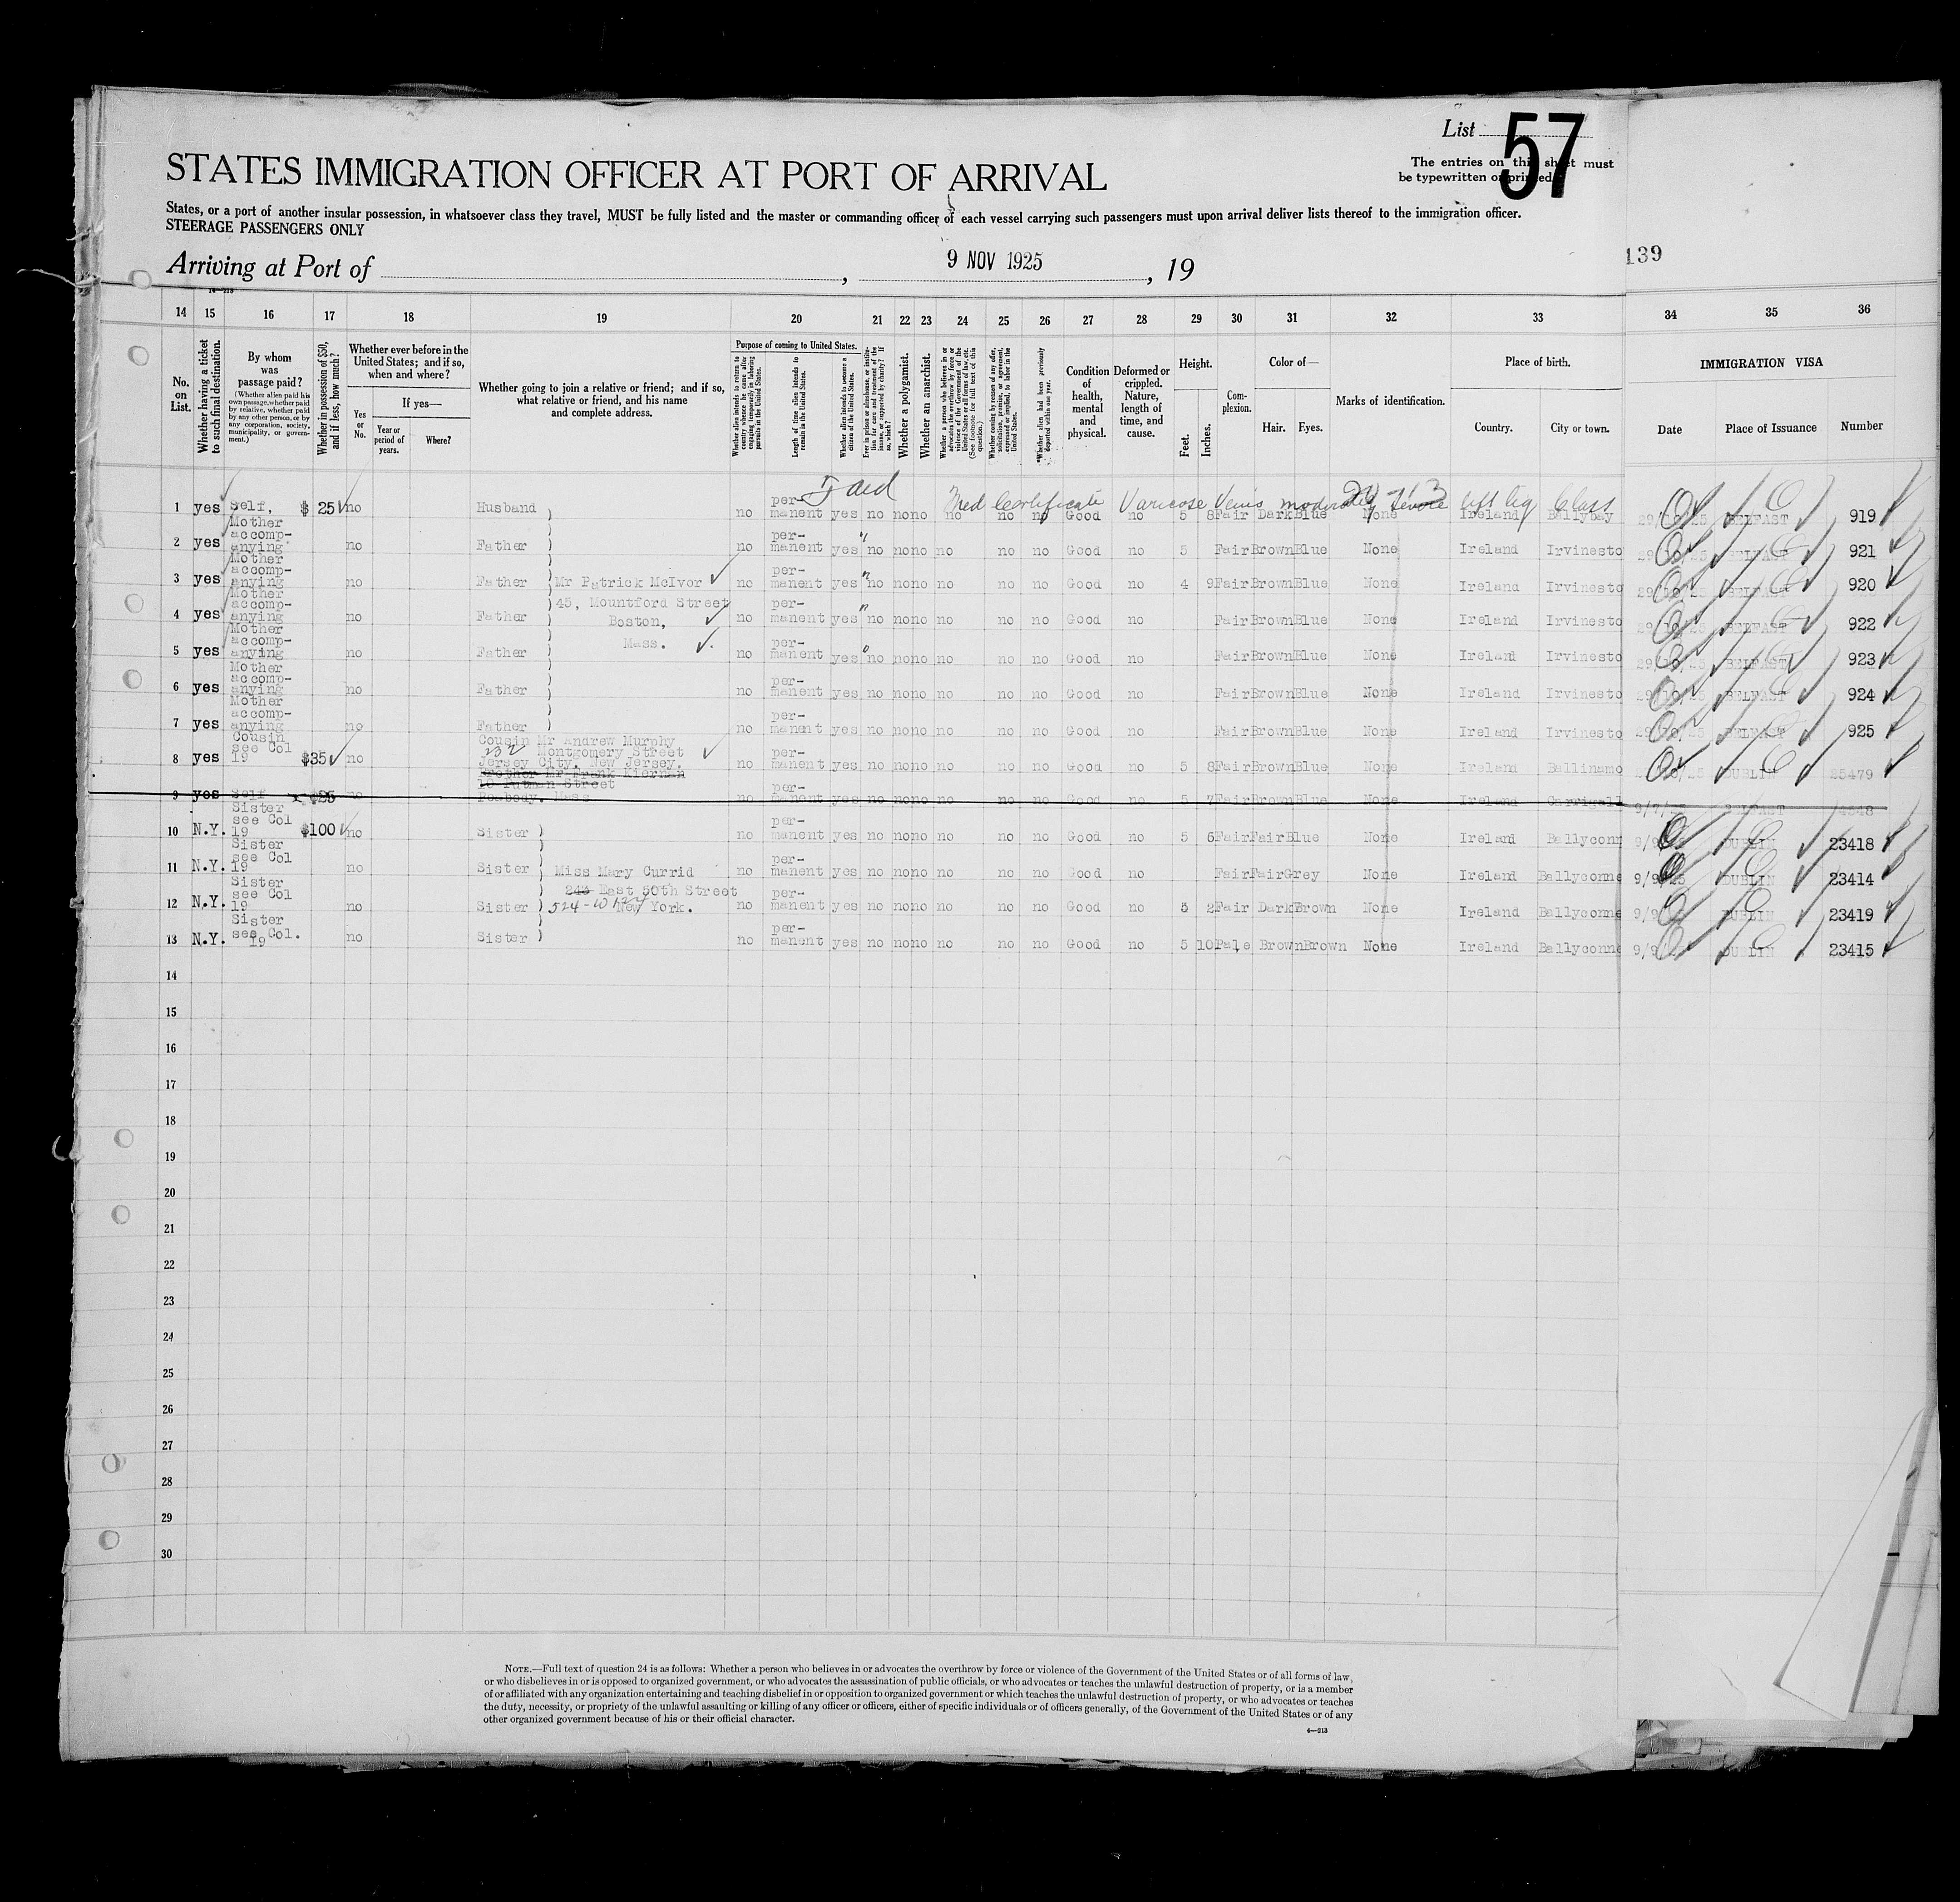 List 57
STATES IMMIGRATION OFFICER AT PORT OF ARRIVAL
The entries on this sheet must
be typewritten or printed.
States, or a port of another insular possession, in whatsoever class they travel, MUST be fully listed and the master or commanding officer of each vessel carrying such passengers must upon arrival deliver lists thereof to the immigration officer.
STEERAGE PASSENGERS ONLY
Arriving at Port of , 9 NOV 1925 , 19
139
14 15 16 17 18 19 20 21 22 23 24 25 26 27 28 29 30 31 32 33 34 35 36
No. on List.
Whether having a ticket to such final destination.
By whom was passage paid?
(Whether alien paid his own passage, whether paid by relative, whether paid by any other person, or by any corporation, society, municipality, or government.)
Whether in possession of $50, and if less, how much?
Whether ever before in the United States; and if so, when and where?
Yes or No.
If yes—
Year or period of years.
Where?
Whether going to join a relative or friend; and if so, what relative or friend, and his name and complete address.
Purpose of coming to United States.
Whether alien intends to return to country whence he came after engaging temporarily in laboring pursuits in the United States.
Length of time alien intends to remain in the United States.
Whether alien intends to become a citizen of the United States.
Ever in prison or almshouse, or institution for care and treatment of the insane, or supported by charity? If so, which?
Whether a polygamist.
Whether an anarchist.
Whether coming by reason of any offer, solicitation, promise, or agreement, expressed or implied, to labor in the United States.
*Whether alien had been previously deported within one year.
Condition of health, mental and physical.
Deformed or crippled. Nature, length of time, and cause.
Height.
Feet. Inches.
Complexion.
Color of—
Hair. Eyes.
Marks of identification.
Place of birth.
Country. City or town.
IMMIGRATION VISA
Date Place of Issuance Number
Med Certificate Varicose Veins moderately severe left leg Class
1 yes Self, $ 25 no Husband no per-manent yes no no no no no no Good no 5 8 Fair Dark Blue None Ireland Ballybay 29/10/25 BELFAST 919
2 yes Mother accomp-anying no Father no per-manent yes no no no no no no Good no 5 Fair Brown Blue None Ireland Irvinesto 29/10/25 BELFAST 921
3 yes Mother accomp-anying no Father Mr Patrick McIvor no per-manent yes no no no no no no Good no 4 9 Fair Brown Blue None Ireland Irvinesto 29/10/25 BELFAST 920
45, Mountford Street
4 yes Mother accomp-anying no Father Boston, no per-manent yes no no no no no no Good no Fair Brown Blue None Ireland Irvinesto 29/10/25 BELFAST 922
Mass.
5 yes Mother accomp-anying no Father no per-manent yes no no no no no no Good no Fair Brown Blue None Ireland Irvinesto 29/10/25 BELFAST 923
6 yes Mother accomp-anying no Father no per-manent yes no no no no no no Good no Fair Brown Blue None Ireland Irvinesto 29/10/25 BELFAST 924
7 yes Mother accomp-anying no Father no per-manent yes no no no no no no Good no Fair Brown Blue None Ireland Irvinesto 29/10/25 BELFAST 925
8 yes Cousin see Col 19 $35 no Cousin Mr Andrew Murphy 232 Montgomery Street Jersey City, New Jersey. no per-manent yes no no no no no no Good no 5 8 Fair Brown Blue None Ireland Ballinamo DUBLIN 25479
9 yes Self $25 no Brother Mr Frank Kiernan 10 Putnam Street Peabody. Mass no per-manent yes no no no no no no Good no 5 7 Fair Brown Blue None Ireland Carrigall BELFAST
10 N.Y. Sister see Col 19 $100 no Sister no per-manent yes no no no no no no Good no 5 6 Fair Fair Blue None Ireland Ballyconn DUBLIN 23418
11 N.Y. Sister see Col 19 no Sister Miss Mary Currid no per-manent yes no no no no no no Good no Fair Fair Grey None Ireland Ballyconne DUBLIN 23414
243 East 50th Street
12 N.Y. Sister see Col 19 no Sister New York. no per-manent yes no no no no no no Good no 5 2 Fair Dark Brown None Ireland Ballyconne DUBLIN 23419
13 N.Y. Sister see Col. 19 no Sister no per-manent yes no no no no no no Good no 5 10 Pale Brown Brown None Ireland Ballyconne DUBLIN 23415
14
15
16
17
18
19
20
21
22
23
24
25
26
27
28
29
30
NOTE.—Full text of question 24 is as follows: Whether a person who believes in or advocates the overthrow by force or violence of the Government of the United States or of all forms of law,
or who disbelieves in or is opposed to organized government, or who advocates the assassination of public officials, or who advocates or teaches the unlawful destruction of property, or is a member
of or affiliated with any organization entertaining and teaching disbelief in or opposition to organized government or which teaches the unlawful destruction of property, or who advocates or teaches
the duty, necessity, or propriety of the unlawful assaulting or killing of any officer or officers, either of specific individuals or of officers generally, of the Government of the United States or of any
other organized government because of his or their official character.
4—213